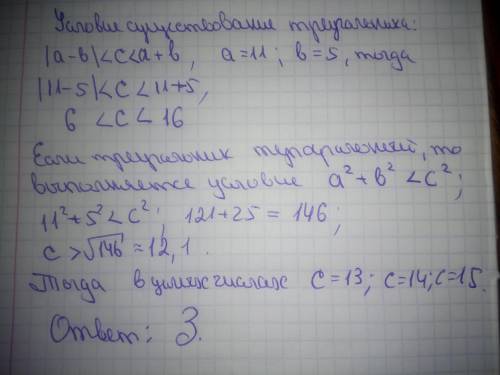 Условие существования треугольника:
|a-b|<c<a+b, a=11; b=5, тогда
|11-5|<c<11+5,
6 <c< 16
Если треугольник тупоугольный, то
выполняется условие a²+b²<c²;
11²+5²<c²; 121+25=146;
c>√146≈12,1.
Тогда в целых числах c=13; c=14; c=15.
Ответ: 3.